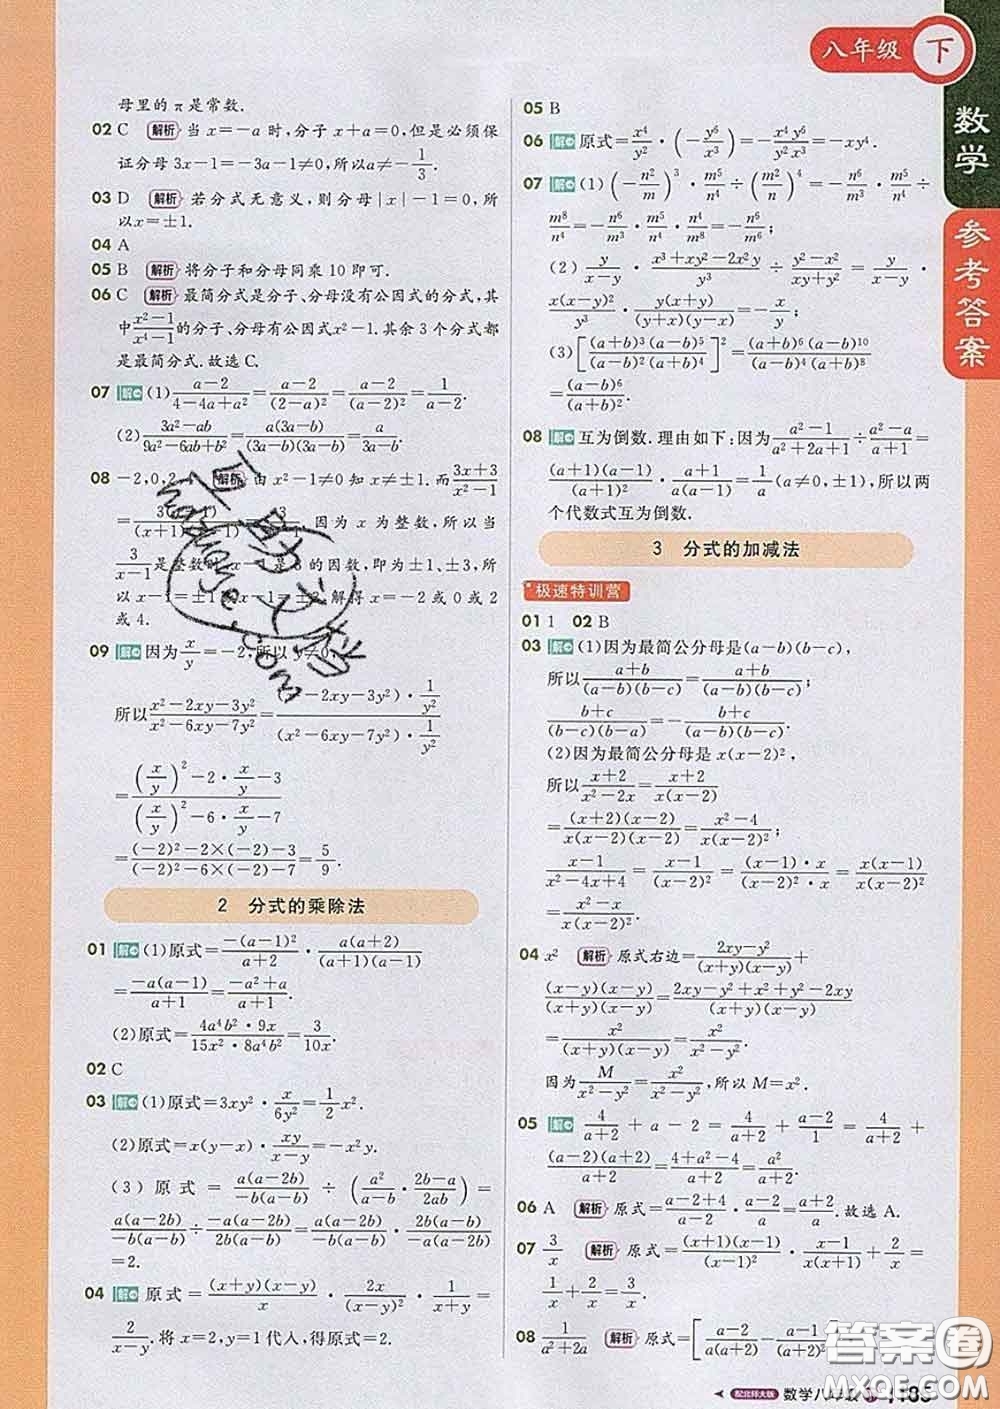 八年级 下
数学
参考答案
母里的 π 是常数.
02 C 解析 当 x=-a 时,分子 x+a=0,但是必须保
证分母 3x-1=-3a-1≠0,所以a≠-1/3.
03 D 解析 若分式无意义,则分母|x|-1=0,所
以x=±1.
04 A
05 B 解析 将分子和分母同乘 10 即可.
06 C 解析 最简分式是分子、分母没有公因式的分式,其
中(x²-1)/(x⁴-1)的分子、分母有公因式x²-1.其余 3 个分式都
是最简分式.故选 C.
07 解 (1)(a-2)/(4-4a+a²)=(a-2)/(2-a)²=(a-2)/(a-2)²=1/(a-2).
(2)(3a²-ab)/(9a²-6ab+b²)=a(3a-b)/((3a-b)(3a-b))=a/(3a-b).
08 -2,0,2, 解析 由 x²-1≠0 知 x≠±1.而(3x+3)/(x²-1)
因为 x 为整数,所以当
3/(x-1)是整数时 的因数,即±1、±3,
解得 x=-2 或 0 或 2
或 4.
09 解 因为x/y=-2,所以 y≠0,
所以(x²-2xy-3y²)/(x²-6xy-7y²)=((x²-2xy-3y²)·1/y²)/((x²-6xy-7y²)·1/y²)
=((x/y)²-2·x/y-3)/((x/y)²-6·x/y-7)
=((-2)²-2×(-2)-3)/((-2)²-6×(-2)-7)=5/9.
2 分式的乘除法
01 解 (1)原式=-(a-1)²/(a+2)·a(a+2)/((a+1)(a-1))
=-a(a-1)/(a+1)=(-a²+a)/(a+1).
(2)原式=(4a⁴b²·9x)/(15x²·8a⁴b²)=3/(10x).
02 C
03 解 (1)原式=3xy²·x/(6y²)=1/2 x².
(2)原式=x(y-x)·xy/(x-y)=-x²y.
(3)原式=a(a-2b)/(-b(a-b))÷(a²/(a-b)·(2b-a)/(2ab))=
a(a-2b)/(-b(a-b))÷(-a(a-2b))/(2b(a-b))=a(a-2b)/(-b(a-b))·2b(a-b)/(-a(a-2b))
=2.
04 解 原式=(x+y)(x-y)/x·2x/(x-y)²·1/(x+y)=
2/(x-y).将 x=2,y=1代入,得原式=2.
05 B
06 解 原式=x⁴/y²·(-y⁶/x³)=-x⁴y⁶/(y²x³)=-xy⁴.
07 解 (1)(-n²/m)³·m⁵/n⁴÷(m²/n)⁴=-n⁶/m³·m⁵/n⁴÷
m⁸/n⁴=-n⁶/m³·m⁵/n⁴·n⁴/m⁸=-n⁶/m⁶;
(2)y/(x-y)·(x³+xy²-2x²y)/y³÷(y²-x²)/(xy+y²)=y/(x-y)·
x(x-y)²/y³·y(x+y)/((y+x)(y-x))=-x/y;
(3)[(a+b)³(a-b)⁵/(a+b)⁵(a-b)²]²=(a+b)⁶(a-b)¹⁰/((a+b)¹⁰(a-b)⁴)
=(a-b)⁶/(a+b)⁴.
08 解 互为倒数.理由如下:因为(a²-1)/(a²+2a+1)÷(a²-a)/(a+1)=
(a+1)(a-1)/(a+1)²·(a+1)/(a(a-1))=1/a(a≠0,±1),所以两
个代数式互为倒数.
3 分式的加减法
极速特训营
01 1 02 B
03 解 (1)因为最简公分母是(a-b)(b-c),
所以(a+b)/((a-b)(b-c))=(a+b)/((a-b)(b-c));
(b+c)/((b-c)(b-a))=-(b+c)/((a-b)(b-c)).
(2)因为最简公分母是 x(x-2)²,
所以(x+2)/(x²-2x)=(x+2)/(x(x-2))
=(x+2)(x-2)/(x(x-2)(x-2))=(x²-4)/(x(x-2)²);
(x-1)/(x²-4x+4)=(x-1)/(x-2)²=(x-1)·x/((x-2)²·x)=x(x-1)/(x(x-2)²)
=(x²-x)/(x(x-2)²).
04 x² 解析 原式右边=(2xy-y²)/((x+y)(x-y))+
(x-y)(x-y)/((x+y)(x-y))=(2xy-y²+x²+y²-2xy)/((x+y)(x-y))
=x²/((x+y)(x-y))=x²/(x²-y²).
因为M/(x²-y²)=x²/(x²-y²),所以 M=x².
05 解 4/(a+2)+a-2=4/(a+2)+(a-2)/1=4/(a+2)+
(a-2)(a+2)/(a+2)=(4+a²-4)/(a+2)=a²/(a+2).
06 A 解析 原式=(a-2+4)/(a-2)·(a-2)/a=(a+2)/a.故选 A.
07 3/x 解析 原式=(x+1)(x-1)/(x-1)²·(x-1)/(x(x+1))+2/x=
1/x+2/x=3/x.
08 1/(a²+2a) 解析 原式=[(a-2)/(a(a+2))-(a-1)/
配北师大版 数学八年级 下 185
答案圈
MXQE.COM